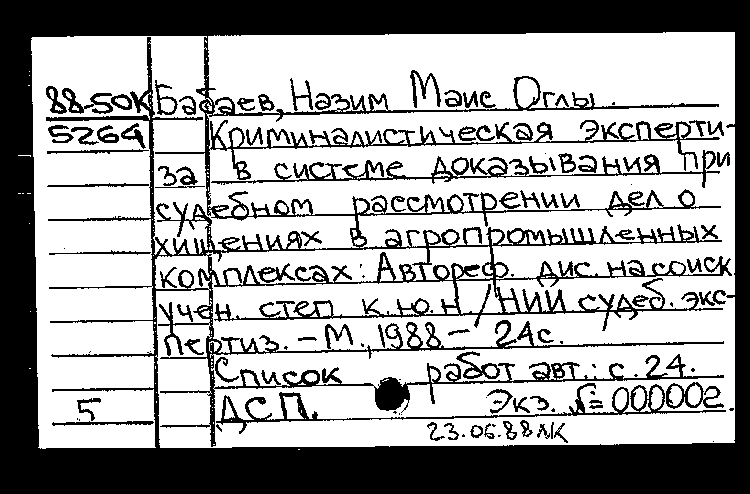 88-50К Бабаев, Назим Маис Оглы.
5264 Криминалистическая эксперти-
за в системе доказывания при
судебном рассмотрении дел о
хищениях в агропромышленных
комплексах: Автореф. дис. на соиск.
учен. степ. к.ю.н / НИИ судеб. экс-
пертиз. – М., 1988 – 24с.
Список работ авт.: с. 24.
5 ДСП. Экз. № 000002.
23.06.88 ЛК